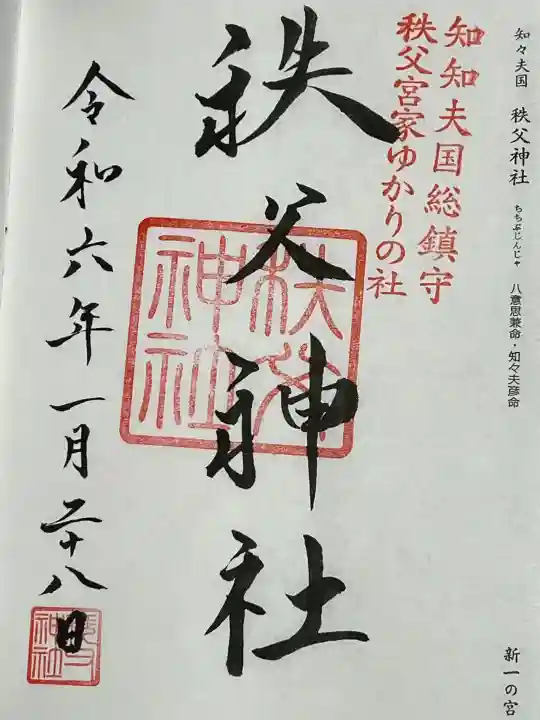 知々夫国 秩父神社 ちちぶじんじゃ 八意思兼命・知々夫彦命
新一の宮
知知夫国総鎮守
秩父宮家ゆかりの社
秩父神社
秩父神社
令和六年一月二十八日